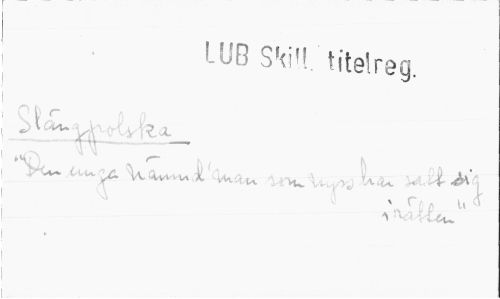 LUB Skill. titelreg.
Slängpolska
"Den unga nämnd'man som nyss har satt sig
i rätten"